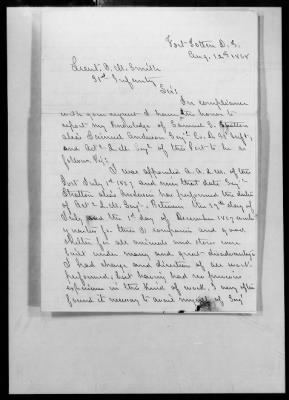 Fort Totten D. T.
Aug. 12th 18
Lieut. F. M. Smith
31st Infantry
Sir:
In compliance
with your request I have the honor to
report my knowledge of Samuel S. Shelton
alias Samuel Anderson Co. A 31st Inft.
and Act. 2. M. of the Post to be as
follows. Viz:
I was appointed A. A. Q. M. of the
Post July 1st 1867 and since that date
Shelton alias Anderson has performed the duties
of Act. 2. M. Between the day of
July and the 1st day of December 1867
quarters for three companies and good
shelter for all animals and stores were
built under many and great disadvantages
I had charge and direction of all work
performed, but having had no previous
experience in this kind of work, I very often
found it necessary to avail myself of